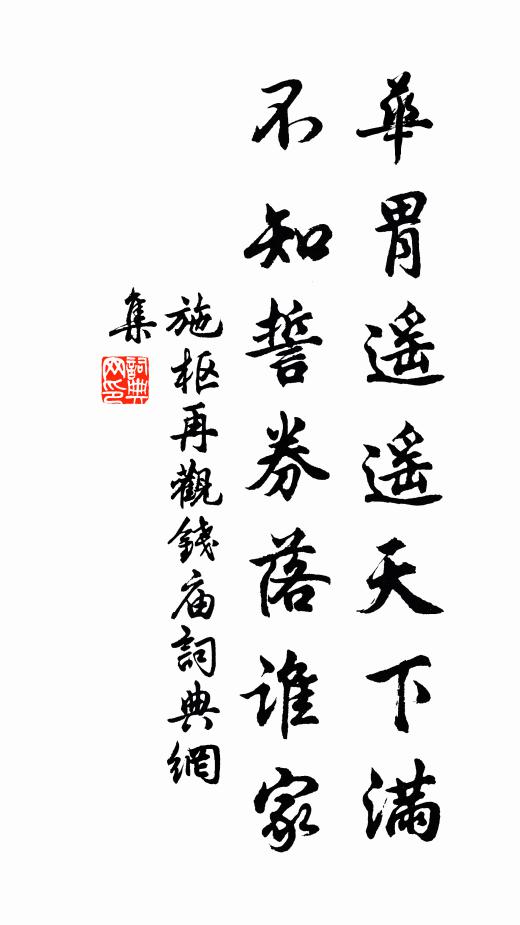 華胃遥遥天下滿
不知誓券落誰家
施枢再觀錢庙詞典網
集
詞典网印